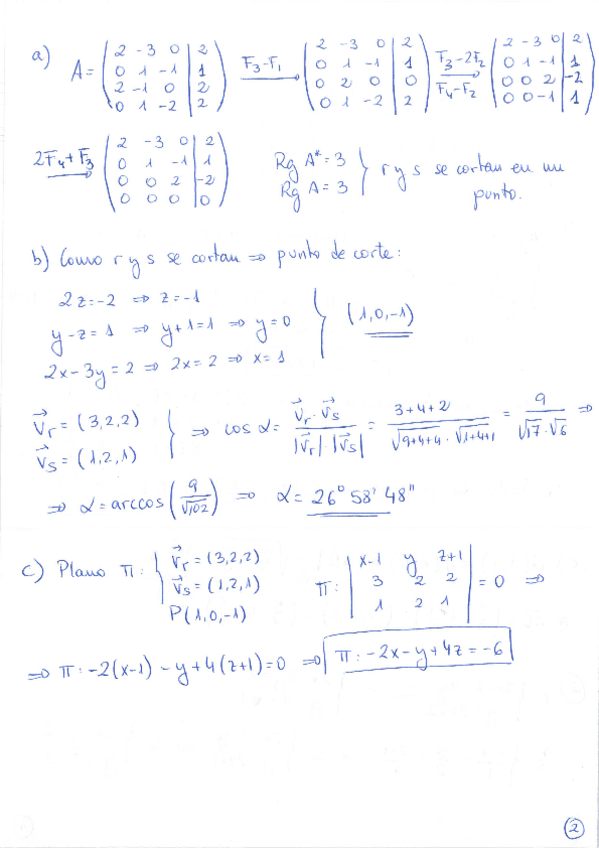 a) A = ( 2 -3 0 | 2 ; 0 1 -1 | 1 ; 2 -1 0 | 2 ; 0 1 -2 | 2 ) F₃-F₁ → ( 2 -3 0 | 2 ; 0 1 -1 | 1 ; 0 2 0 | 0 ; 0 1 -2 | 2 ) F₃-2F₂ F₄-F₂ → ( 2 -3 0 | 2 ; 0 1 -1 | 1 ; 0 0 2 | -2 ; 0 0 -1 | 1 )
2F₄+F₃ → ( 2 -3 0 | 2 ; 0 1 -1 | 1 ; 0 0 2 | -2 ; 0 0 0 | 0 ) Rg A* = 3 Rg A = 3 } r y s se cortan en un punto.
b) Como r y s se cortan ⇒ punto de corte:
2z = -2 ⇒ z = -1
y - z = 1 ⇒ y + 1 = 1 ⇒ y = 0 } (1,0,-1)
2x - 3y = 2 ⇒ 2x = 2 ⇒ x = 1
v⃗r = (3,2,2) v⃗s = (1,2,1) } ⇒ cos α = v⃗r · v⃗s / |v⃗r| · |v⃗s| = 3+4+2 / √9+4+4 · √1+4+1 = 9 / √17 · √6 ⇒
⇒ α = arccos (9/√102) ⇒ α = 26° 58' 48"
c) Plano π: { v⃗r = (3,2,2) v⃗s = (1,2,1) P(1,0,-1) π: | x-1 y z+1 ; 3 2 2 ; 1 2 1 | = 0 ⇒
⇒ π: -2(x-1) - y + 4(z+1) = 0 ⇒ π: -2x - y + 4z = -6
2